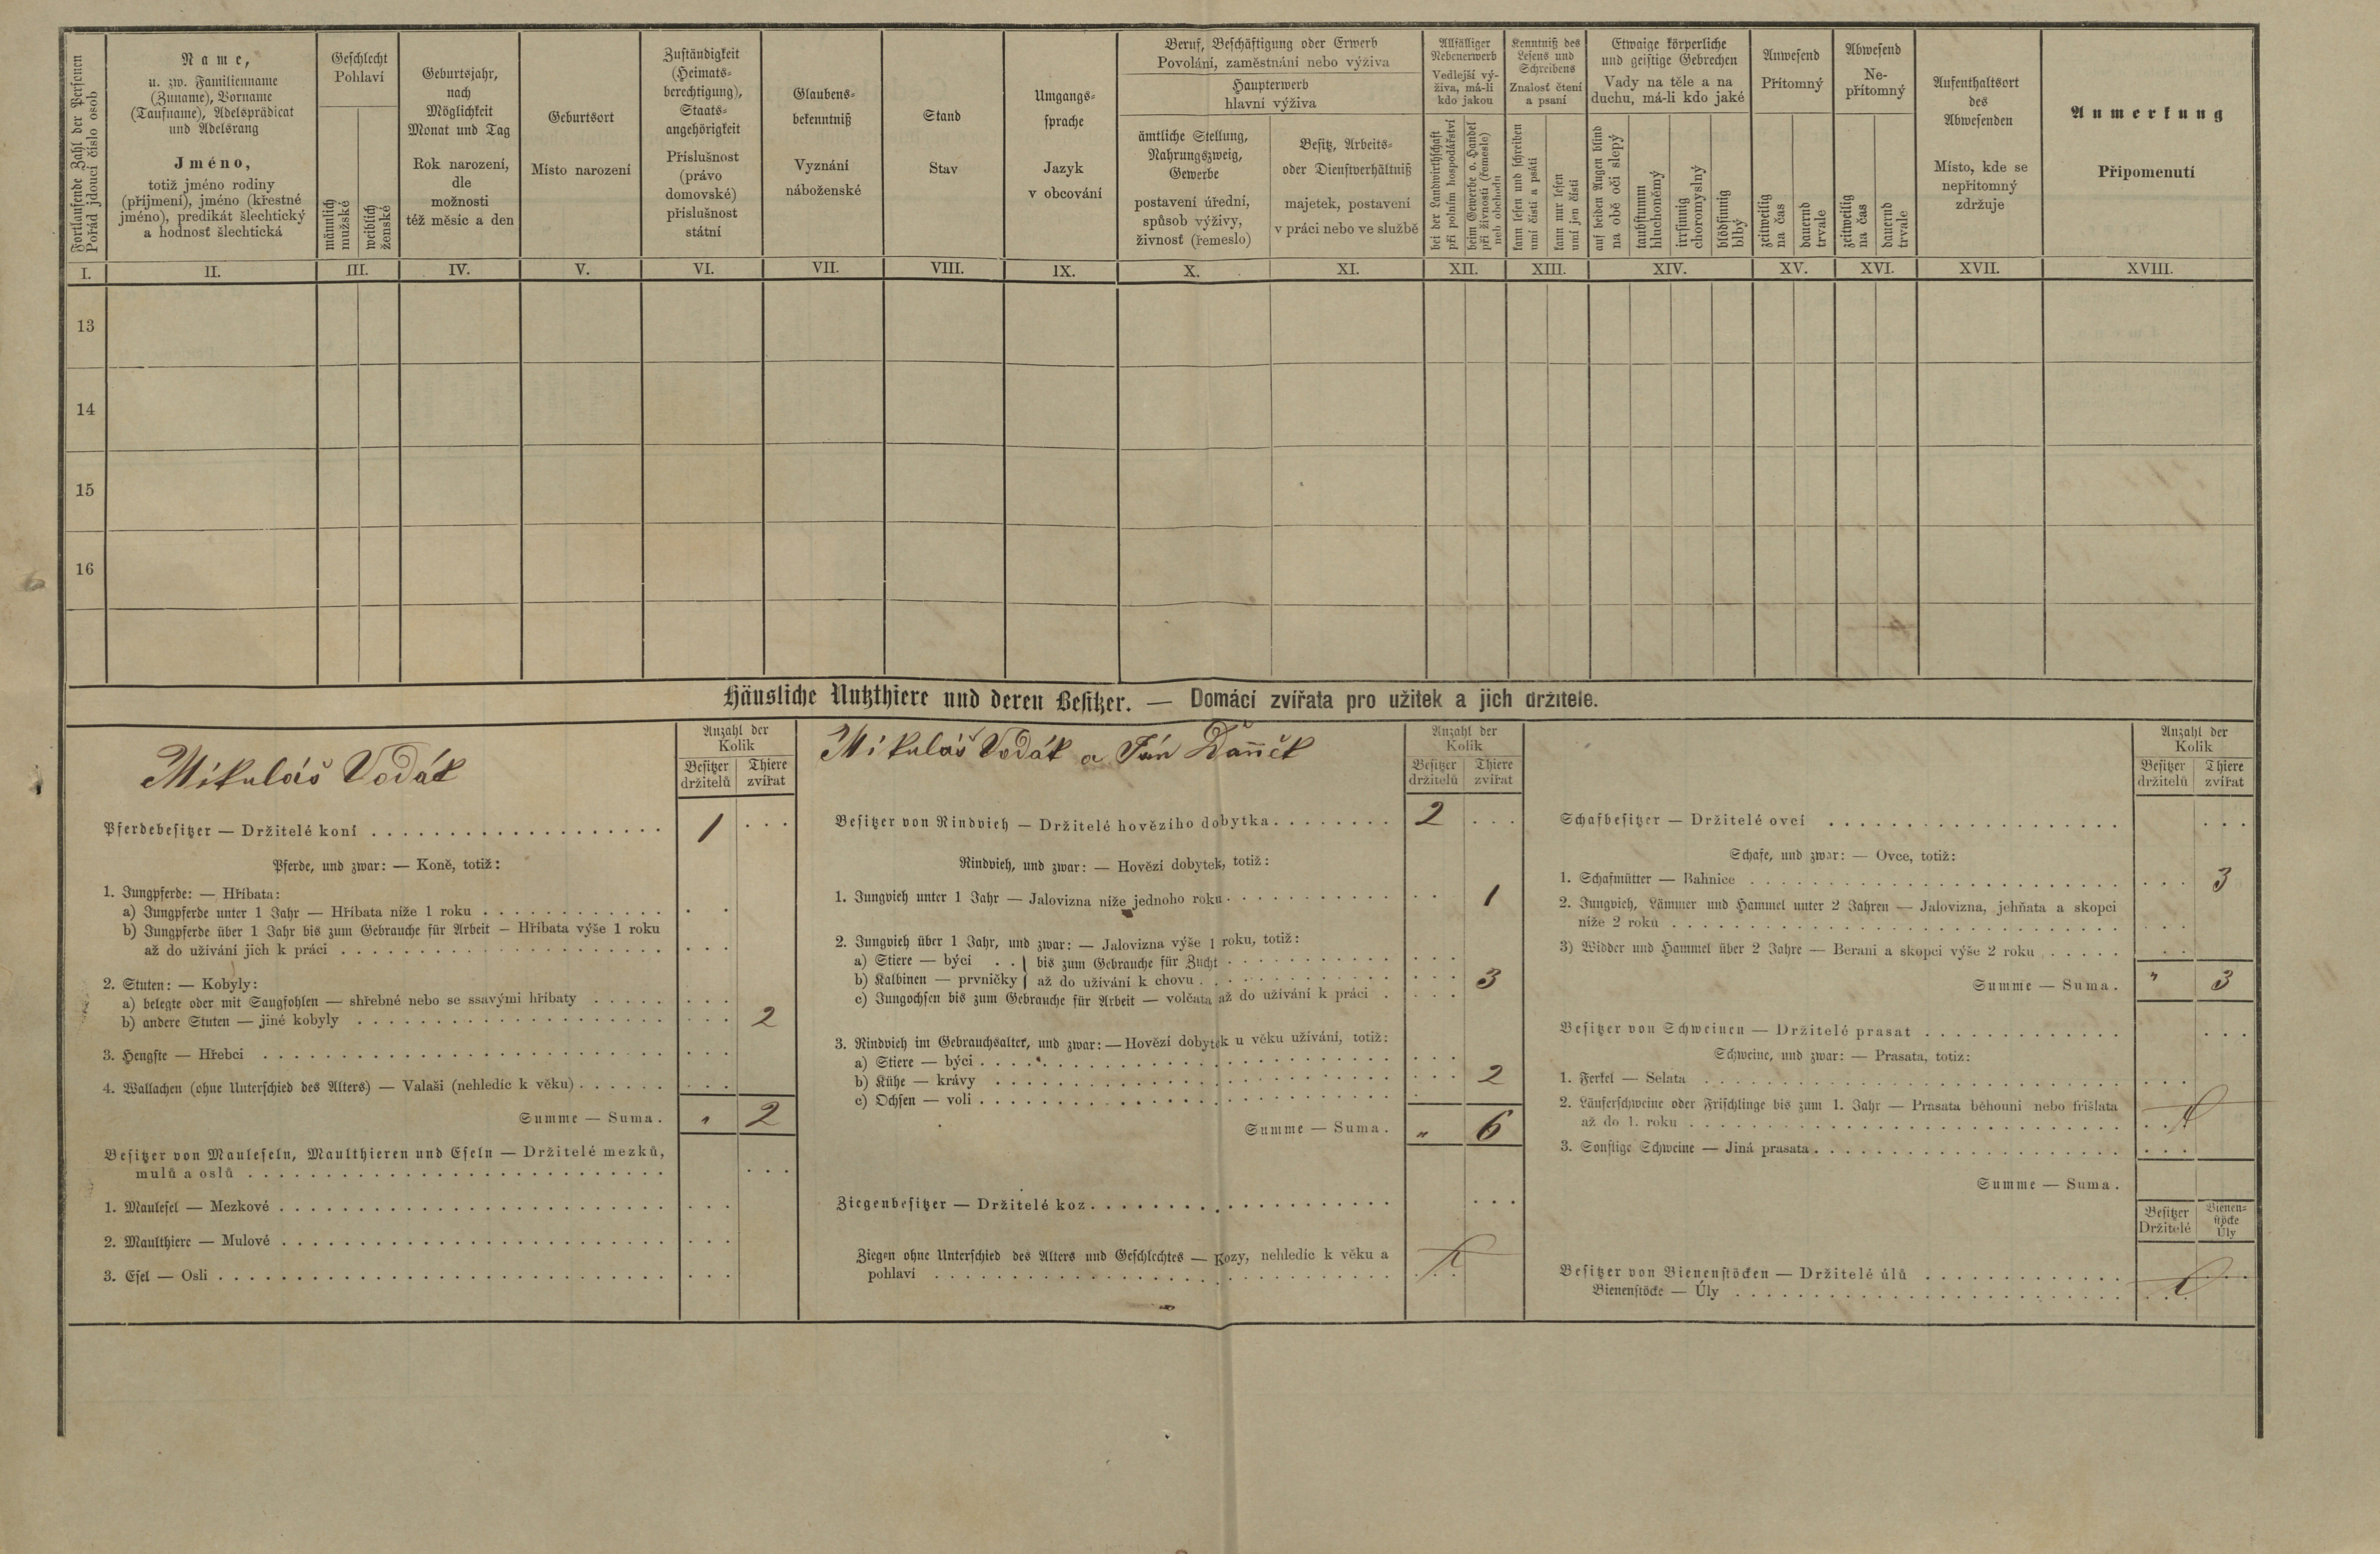 Fortlaufende Zahl der Personen
Pořád jdoucí číslo osob
Name,
u. zw. Familienname
(Zuname), Vorname
(Taufname), Adelsprädicat
und Adelsrang
Jméno,
totiž jméno rodiny
(příjmení), jméno (křestné
jméno), predikát šlechtický
a hodnosť šlechtická
Geschlecht
Pohlaví
männlich
mužské
weiblich
ženské
Geburtsjahr,
nach
Möglichkeit
Monat und Tag
Rok narození,
dle
možnosti
též měsíc a den
Geburtsort
Místo narození
Zuständigkeit
(Heimats-
berechtigung),
Staats-
angehörigkeit
Příslušnost
(právo
domovské)
příslušnost
státní
Glaubens-
bekenntniß
Vyznání
náboženské
Stand
Stav
Umgangs-
sprache
Jazyk
v obcování
Beruf, Beschäftigung oder Erwerb
Povolání, zaměstnání nebo výživa
Haupterwerb
hlavní výživa
ämtliche Stellung,
Nahrungszweig,
Gewerbe
postavení úřední,
spůsob výživy,
živnosť (řemeslo)
Besitz, Arbeits-
oder Dienstverhältniß
majetek, postavení
v práci nebo ve službě
Allfälliger
Nebenerwerb
Vedlejší vý-
živa, má-li
kdo jakou
bei der Landwirthschaft
při polním hospodářství
beim Gewerbe o. Handel
při živnosti (řemeslo)
neb obchodu
Kenntniß des
Lesens und
Schreibens
Znalosť čtení
a psaní
kann lesen und schreiben
umí čísti a psáti
kann nur lesen
umí jen čísti
Etwaige körperliche
und geistige Gebrechen
Vady na těle a na
duchu, má-li kdo jaké
auf beiden Augen blind
na obě oči slepý
taubstumm
hluchoněmý
irrsinnig
choromyslný
blödsinnig
blbý
Anwesend
Přítomný
zeitweilig
na čas
dauernd
trvale
Abwesend
Ne-
přítomný
zeitweilig
na čas
dauernd
trvale
Aufenthaltsort
des
Abwesenden
Místo, kde se
nepřítomný
zdržuje
Anmerkung
Připomenutí
I. II. III. IV. V. VI. VII. VIII. IX. X. XI. XII. XIII. XIV. XV. XVI. XVII. XVIII.
13
14
15
16
Häusliche Nutzthiere und deren Besitzer. — Domácí zvířata pro užitek a jich držitele.
Mikuláš Vodák
Anzahl der
Kolik
Besitzer
držitelů
Thiere
zvířat
Pferdebesitzer — Držitelé koní 1
Pferde, und zwar: — Koně, totiž:
1. Jungpferde: — Hříbata:
a) Jungpferde unter 1 Jahr — Hříbata níže 1 roku
b) Jungpferde über 1 Jahr bis zum Gebrauche für Arbeit — Hříbata výše 1 roku
až do užívání jich k práci
2. Stuten: — Kobyly:
a) belegte oder mit Saugfohlen — shřebné nebo se ssavými hříbaty
b) andere Stuten — jiné kobyly 2
3. Hengste — Hřebci
4. Wallachen (ohne Unterschied des Alters) — Valaši (nehledíc k věku)
Summe — Suma. " 2
Besitzer von Mauleseln, Maulthieren und Eseln — Držitelé mezků,
mulů a oslů
1. Maulesel — Mezkové
2. Maulthiere — Mulové
3. Esel — Osli
Mikuláš Vodák a Ján
Anzahl der
Kolik
Besitzer
držitelů
Thiere
zvířat
Besitzer von Rindvieh — Držitelé hovězího dobytka 2
Rindvieh, und zwar: — Hovězí dobytek, totiž:
1. Jungvieh unter 1 Jahr — Jalovizna níže jednoho roku 1
2. Jungvieh über 1 Jahr, und zwar: — Jalovizna výše 1 roku, totiž:
a) Stiere — býci . . } bis zum Gebrauche für Zucht
b) Kalbinen — prvničky } až do užívání k chovu 3
c) Jungochsen bis zum Gebrauche für Arbeit — volčata až do užívání k práci
3. Rindvieh im Gebrauchsalter, und zwar: — Hovězí dobytek u věku užívání, totiž:
a) Stiere — býci
b) Kühe — krávy 2
c) Ochsen — voli
Summe — Suma. " 6
Ziegenbesitzer — Držitelé koz
Ziegen ohne Unterschied des Alters und Geschlechtes — Kozy, nehledíc k věku a
pohlaví
Anzahl der
Kolik
Besitzer
držitelů
Thiere
zvířat
Schafbesitzer — Držitelé ovcí
Schafe, und zwar: — Ovce, totiž:
1. Schafmütter — Bahnice 3
2. Jungvieh, Lämmer und Hammel unter 2 Jahren — Jalovizna, jehňata a skopci
níže 2 roků
3) Widder und Hammel über 2 Jahre — Berani a skopci výše 2 roku
Summe — Suma. " 3
Besitzer von Schweinen — Držitelé prasat
Schweine, und zwar: — Prasata, totiž:
1. Ferkel — Selata
2. Läuferschweine oder Frischlinge bis zum 1. Jahr — Prasata běhouni nebo frišlata
až do 1. roku
3. Sonstige Schweine — Jiná prasata
Summe — Suma.
Besitzer
Držitelé
Bienen-
stöcke
Úly
Besitzer von Bienenstöcken — Držitelé úlů
Bienenstöcke — Úly